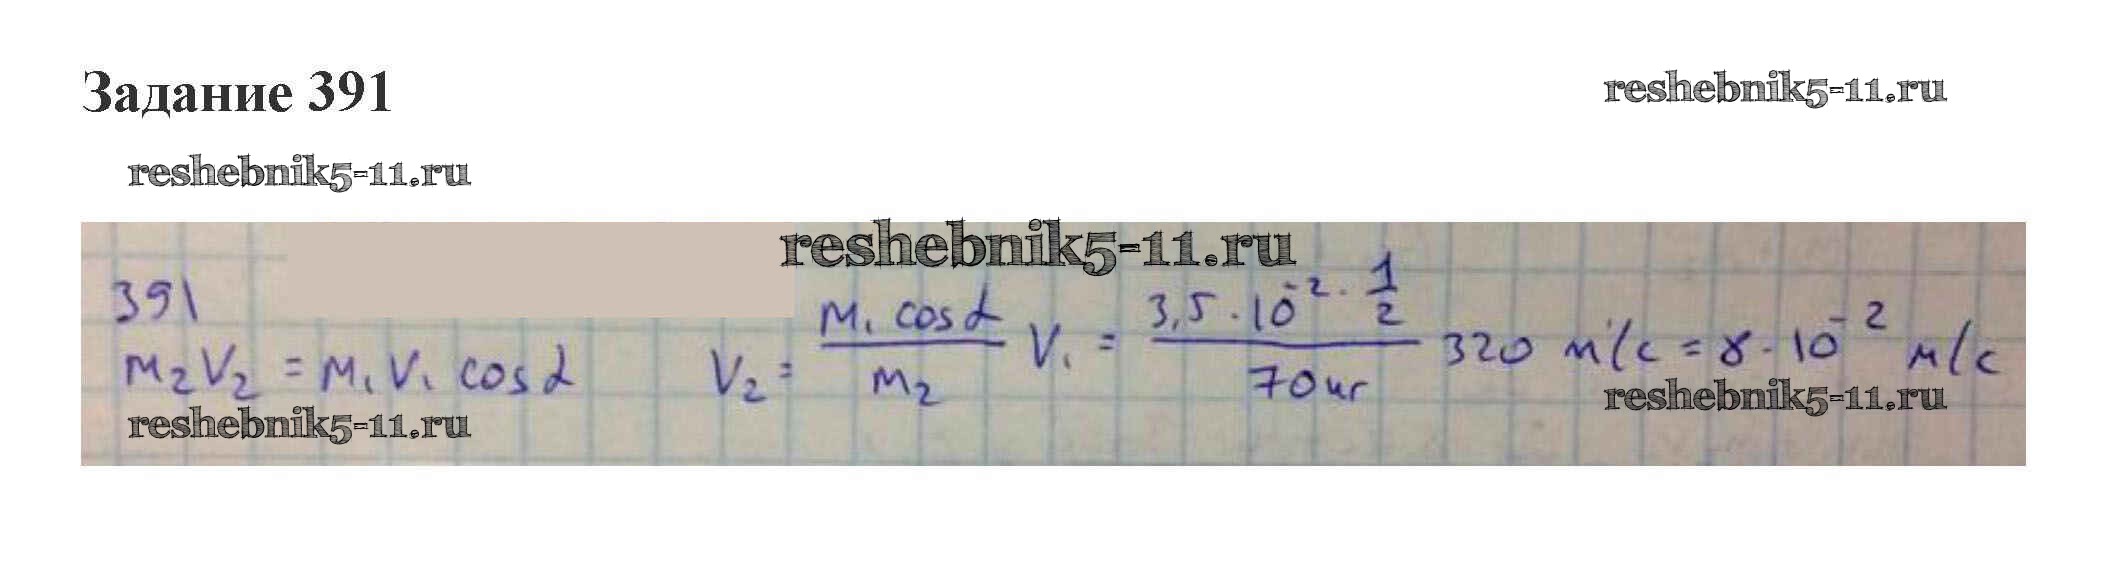 Задание 391
reshebnik5-11.ru
reshebnik5-11.ru
reshebnik5-11.ru
391
m₂V₂ = m₁V₁ cosα V₂ = (m₁ cosα / m₂) V₁ = (3,5 · 10⁻² · 1/2 / 70 кг) 320 м/с = 8 · 10⁻² м/с
reshebnik5-11.ru
reshebnik5-11.ru